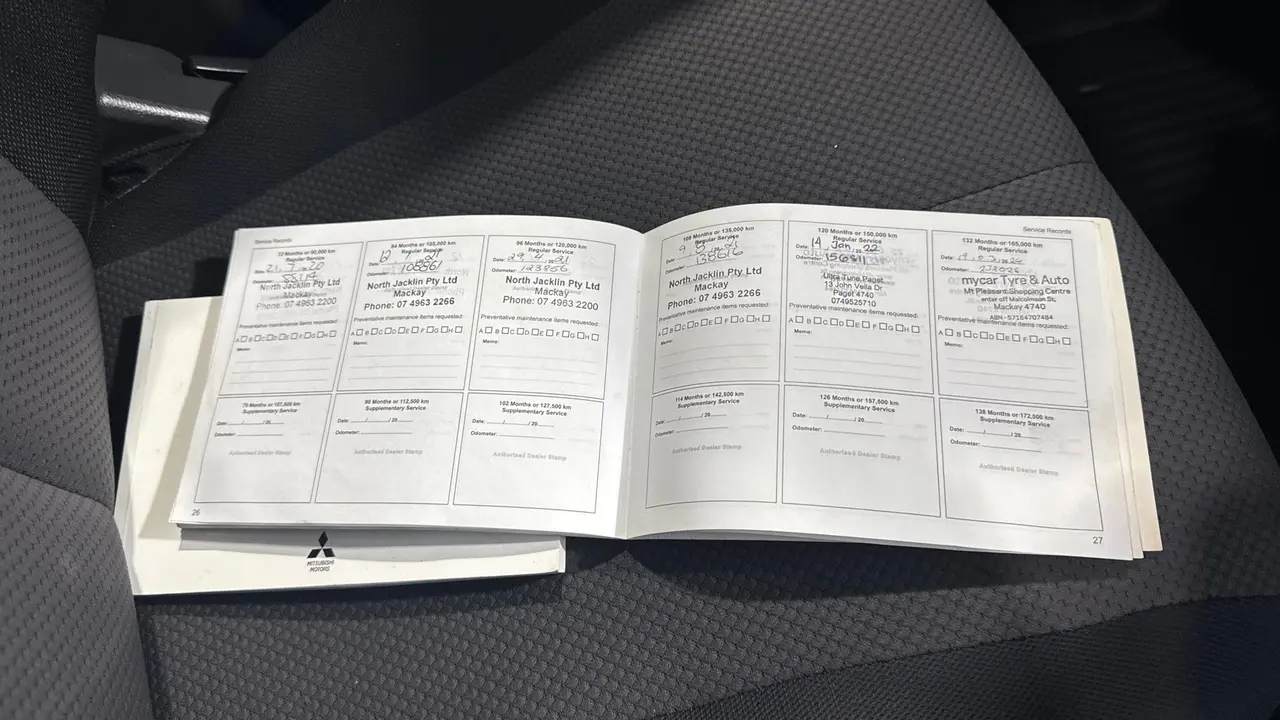 Service Records
72 Months or 90,000 km
Regular Service
Date:
North Jacklin Pty Ltd
Mackay
Phone: 07 4963 2200
Preventative maintenance items requested:
A B C D E F G H
Memo:
84 Months or 105,000 km
Regular Service
Odometer: 108861
North Jacklin Pty Ltd
Mackay
Phone: 07 4963 2266
Preventative maintenance items requested:
A B C D E F G H
Memo:
96 Months or 120,000 km
Regular Service
Date: 29 4 21
Odometer: 123856
North Jacklin Pty Ltd
Mackay
Phone: 07 4963 2200
Preventative maintenance items requested:
A B C D E F G H
Memo:
Supplementary Service
Date: / / 20
Odometer:
Authorised Dealer Stamp
90 Months or 112,500 km
Supplementary Service
Date: / / 20
Odometer:
Authorised Dealer Stamp
102 Months or 127,500 km
Supplementary Service
Date: / / 20
Odometer:
Authorised Dealer Stamp
26
Service Records
108 Months or 135,000 km
Regular Service
138616
North Jacklin Pty Ltd
Mackay
Phone: 07 4963 2266
Preventative maintenance items requested:
A B C D E F G H
Memo:
120 Months or 150,000 km
Regular Service
Date: 14 Jan 22
Odometer: 156811
Ultra Tune Paget
13 John Vella Dr
Paget 4740
0749525710
Preventative maintenance items requested:
A B C D E F G H
Memo:
132 Months or 165,000 km
Regular Service
Date:
Odometer:
mycar Tyre & Auto
Mt Pleasant Shopping Centre
enter off Malcolmson St,
Mackay 4740
ABN-57164707484
Preventative maintenance items requested:
A B C D E F G H
Memo:
114 Months or 142,500 km
Supplementary Service
Date: / / 20
Odometer:
Authorised Dealer Stamp
126 Months or 157,500 km
Supplementary Service
Date: / / 20
Odometer:
Authorised Dealer Stamp
138 Months or 172,500 km
Supplementary Service
Date: / / 20
Odometer:
Authorised Dealer Stamp
27
MITSUBISHI
MOTORS